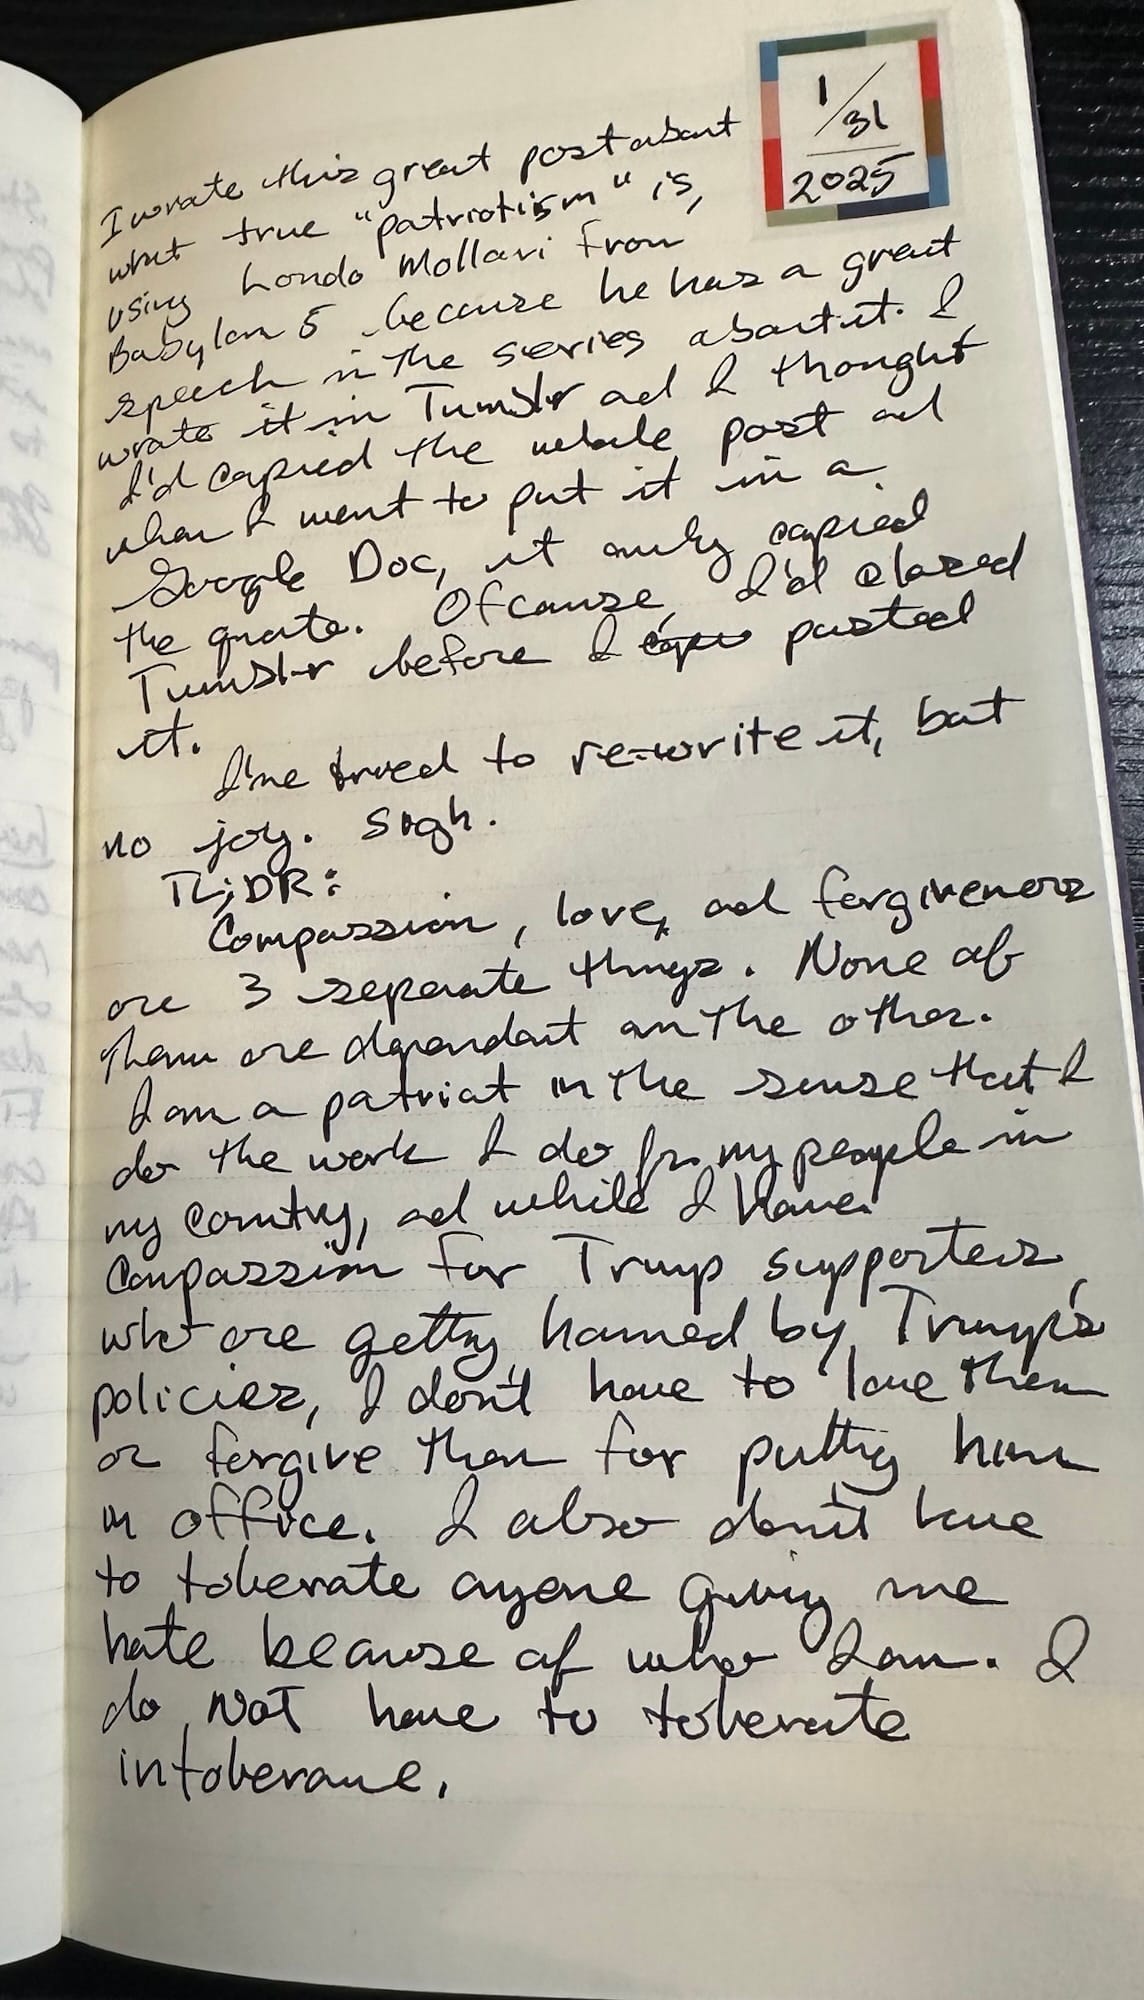 1/31
2025
I wrote this great post about
what true "patriotism" is,
using Londo Mollari from
Babylon 5 because he has a great
speech in the series about it. I
wrote it in Tumblr ad I thought
I'd copied the whole post ad
when I went to put it in a
Google Doc, it only copied
the quote. Of course, I'd closed
Tumblr before I pasted
it.
I've tried to re-write it, but
no joy. Sigh.
TL;DR:
Compassion, love, ad forgiveness
are 3 separate things. None of
them are dependant on the other.
I am a patriot in the sense that I
do the work I do for my people in
my country, ad while I have
compassion for Trump supporters
who are getting harmed by Trump's
policies, I don't have to love them
or forgive them for putting him
in office. I also don't have
to tolerate anyone giving me
hate because of who I am. I
do NOT have to tolerate
intolerance.